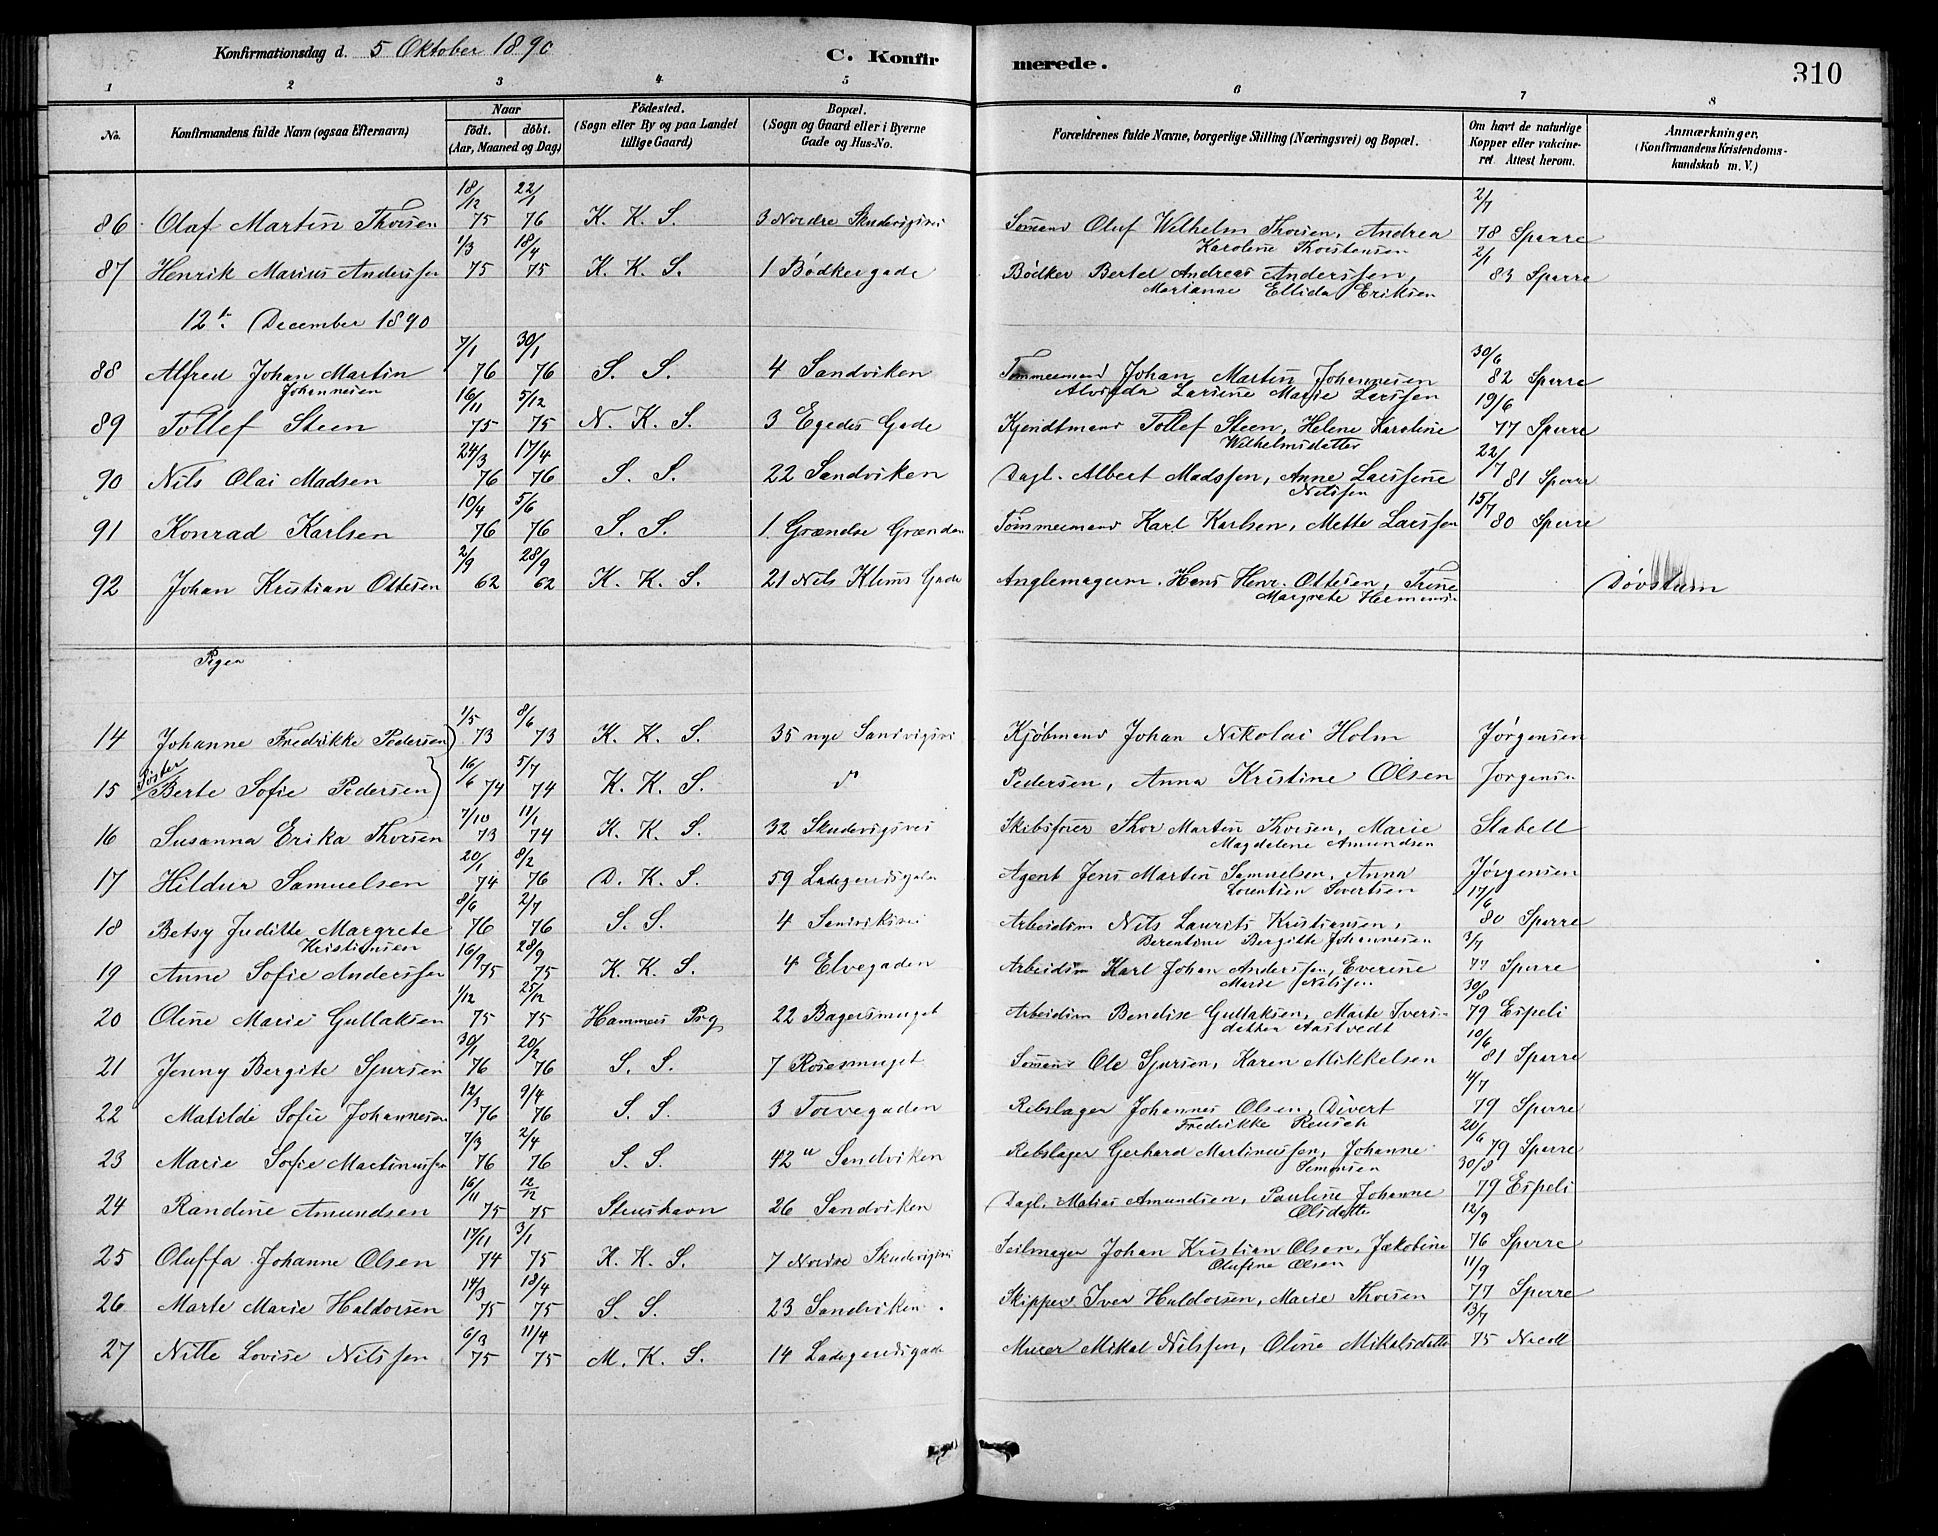 Konfirmationsdag d. 5 Oktober 1890
C. Konfirmerede.
310
1 2 3 4 5 6 7 8
No.
Konfirmandens fulde Navn (ogsaa Efternavn)
Naar
födt. döbt.
(Aar, Maaned og Dag)
Födested.
(Sogn eller By og paa Landet tillige Gaard)
Bopæl.
(Sogn og Gaard eller i Byerne Gade og Hus-No.
Forældrenes fulde Navne, borgerlige Stilling (Næringsvei) og Bopæl.
Om havt de naturlige Kopper eller vakcineret. Attest herom.
Anmærkninger.
(Konfirmandens Kristendomskundskab m. V.)
86 Olaf Martin Thorsen 18/12 75 22/1 76 K. K. S. 3 Nordre Skudevigsvei Sømand Oluf Wilhelm Thorsen, Andrea Karoline Thorstensen 2/7 78 Sperre
87 Henrik Marius Anderssen 1/3 75 18/4 75 K. K. S. 1 Bødkergade Bødker Bertel Andreas Anderssen, Marianne Ellida Eriksen 2/1 83 Sperre
12te December 1890
88 Alfred Johan Martin Johannesen 7/1 76 30/1 76 S. S. 4 Sandviken Tømmermand Johan Martin Johannesen Alvilda Larsine Marie Larssen 30/6 82 Sperre
89 Tollef Steen 16/11 75 5/12 75 N. K. S. 3 Egedes Gade Kjendtmand Tollef Steen, Helene Karoline Wilhelmsdatter 19/6 77 Sperre
90 Nils Olai Madsen 24/3 76 17/4 76 S. S. 22 Sandviken Dagl. Albert Madssen, Anne Larssine Nilssen 22/7 81 Sperre
91 Konrad Karlsen 10/4 76 5/6 76 S. S. 1. Grændse Grænden Tømmermand Karl Karlsen, Mette Larssen 15/7 80 Sperre
92 Johan Kristian Ottesen 2/9 62 28/9 62 K. K. S. 21 Nils Klims Gade Anglemagerm. Hans Henr. Ottesen, Trine Margrete Hermans. Døvstum
Piger
14 Johanne Fredrikke Pedersen 1/5 73 8/6 73 K. K. S. 35 nye Sandvigsvei Kjøbmand Johan Nikolai Holm Jørgensen
15 Søster Berte Sofie Pedersen 16/6 74 5/7 74 K. K. S. do Pedersen, Anna Kristine Olsen Jørgensen
16 Susanna Erika Thorsen 7/10 73 11/1 74 K. K. S. 32 Skudevigsvei Skibsfører Thor Martin Thorsen, Marie Magdalene Amundsen Stabell
17 Hildur Samuelsen 20/1 74 8/2 76 D. K. S. 59 Ladegaardsgaden Agent Jens Martin Samuelsen, Anna Lorentzen Sivertsen Jørgensen
18 Betsy Juditte Margrete Kristiansen 8/6 76 2/7 76 S. S. 4 Sandviksvei Arbeidsm Nils Laurits Kristiansen, Berentine Bergitte Johannesen 17/6 80 Sperre
19 Anne Sofie Anderssen 16/9 75 28/9 75 K. K. S. 4 Elvegaden Arbeidsm Karl Johan Anderssen, Everine Marie Nilssen 3/7 77 Sperre
20 Oline Marie Gullaksen 1/12 75 25/12 75 Hammers Prg 22 Bagersmuget Arbeidsm Bendise Gullaksen, Marte Iversdatter Aastvedt 30/8 79 Espeli
21 Jenny Bergite Sjursen 30/1 76 20/2 76 S. S. 7 Rosesmuget Sømand Ole Sjursen, Karen Mikkelsen 10/6 81 Sperre
22 Matilde Sofie Johannesen 12/3 76 9/4 76 S. S. 3 Torvegaden Rebslager Johannes Olsen, Divert Fredrikke Reusch 4/7 79 Sperre
23 Marie Sofie Martinussen 7/3 76 2/4 76 S. S. 42a Sandviken Rebslager Gerhard Martinussen, Johanne Simonsen 20/6 79 Sperre
24 Randine Amundsen 16/11 75 12/12 75 Stenshavn 26 Sandviken Dagl. Matias Amundsen, Pauline Johanne Olsdatter 30/8 79 Espeli
25 Oluffa Johanne Olsen 17/11 74 3/1 75 K. K. S. 7 Nordre Skudevigsvei Seilmager Johan Kristian Olsen, Jakobine Olufine Olsen 12/9 76 Sperre
26 Marte Marie Haldorsen 14/3 75 18/4 75 S. S. 23 Sandviken. Skipper Iver Haldorsen, Marie Thorsen 11/9 77 Sperre
27 Nitte Lovise Nilssen 6/3 75 11/4 75 M. K. S. 14 Ladegaardsgade Murer Mikal Nilssen, Oline Mikalsdatter 13/7 75 Nicoll